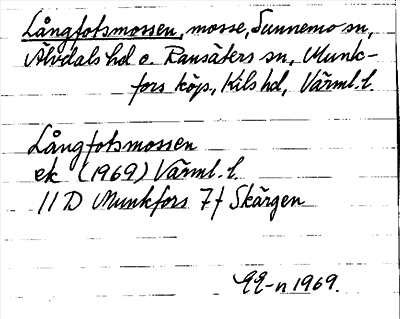 Långfotsmossen, mosse, Sunnemo sn,
Älvdals hd o. Ransäters sn, Munk-
fors köp, Kils hd, Värml. l.
Långfotsmossen
ek (1969) Värml. l.
11 D Munkfors 7 f Skärgen
1969.